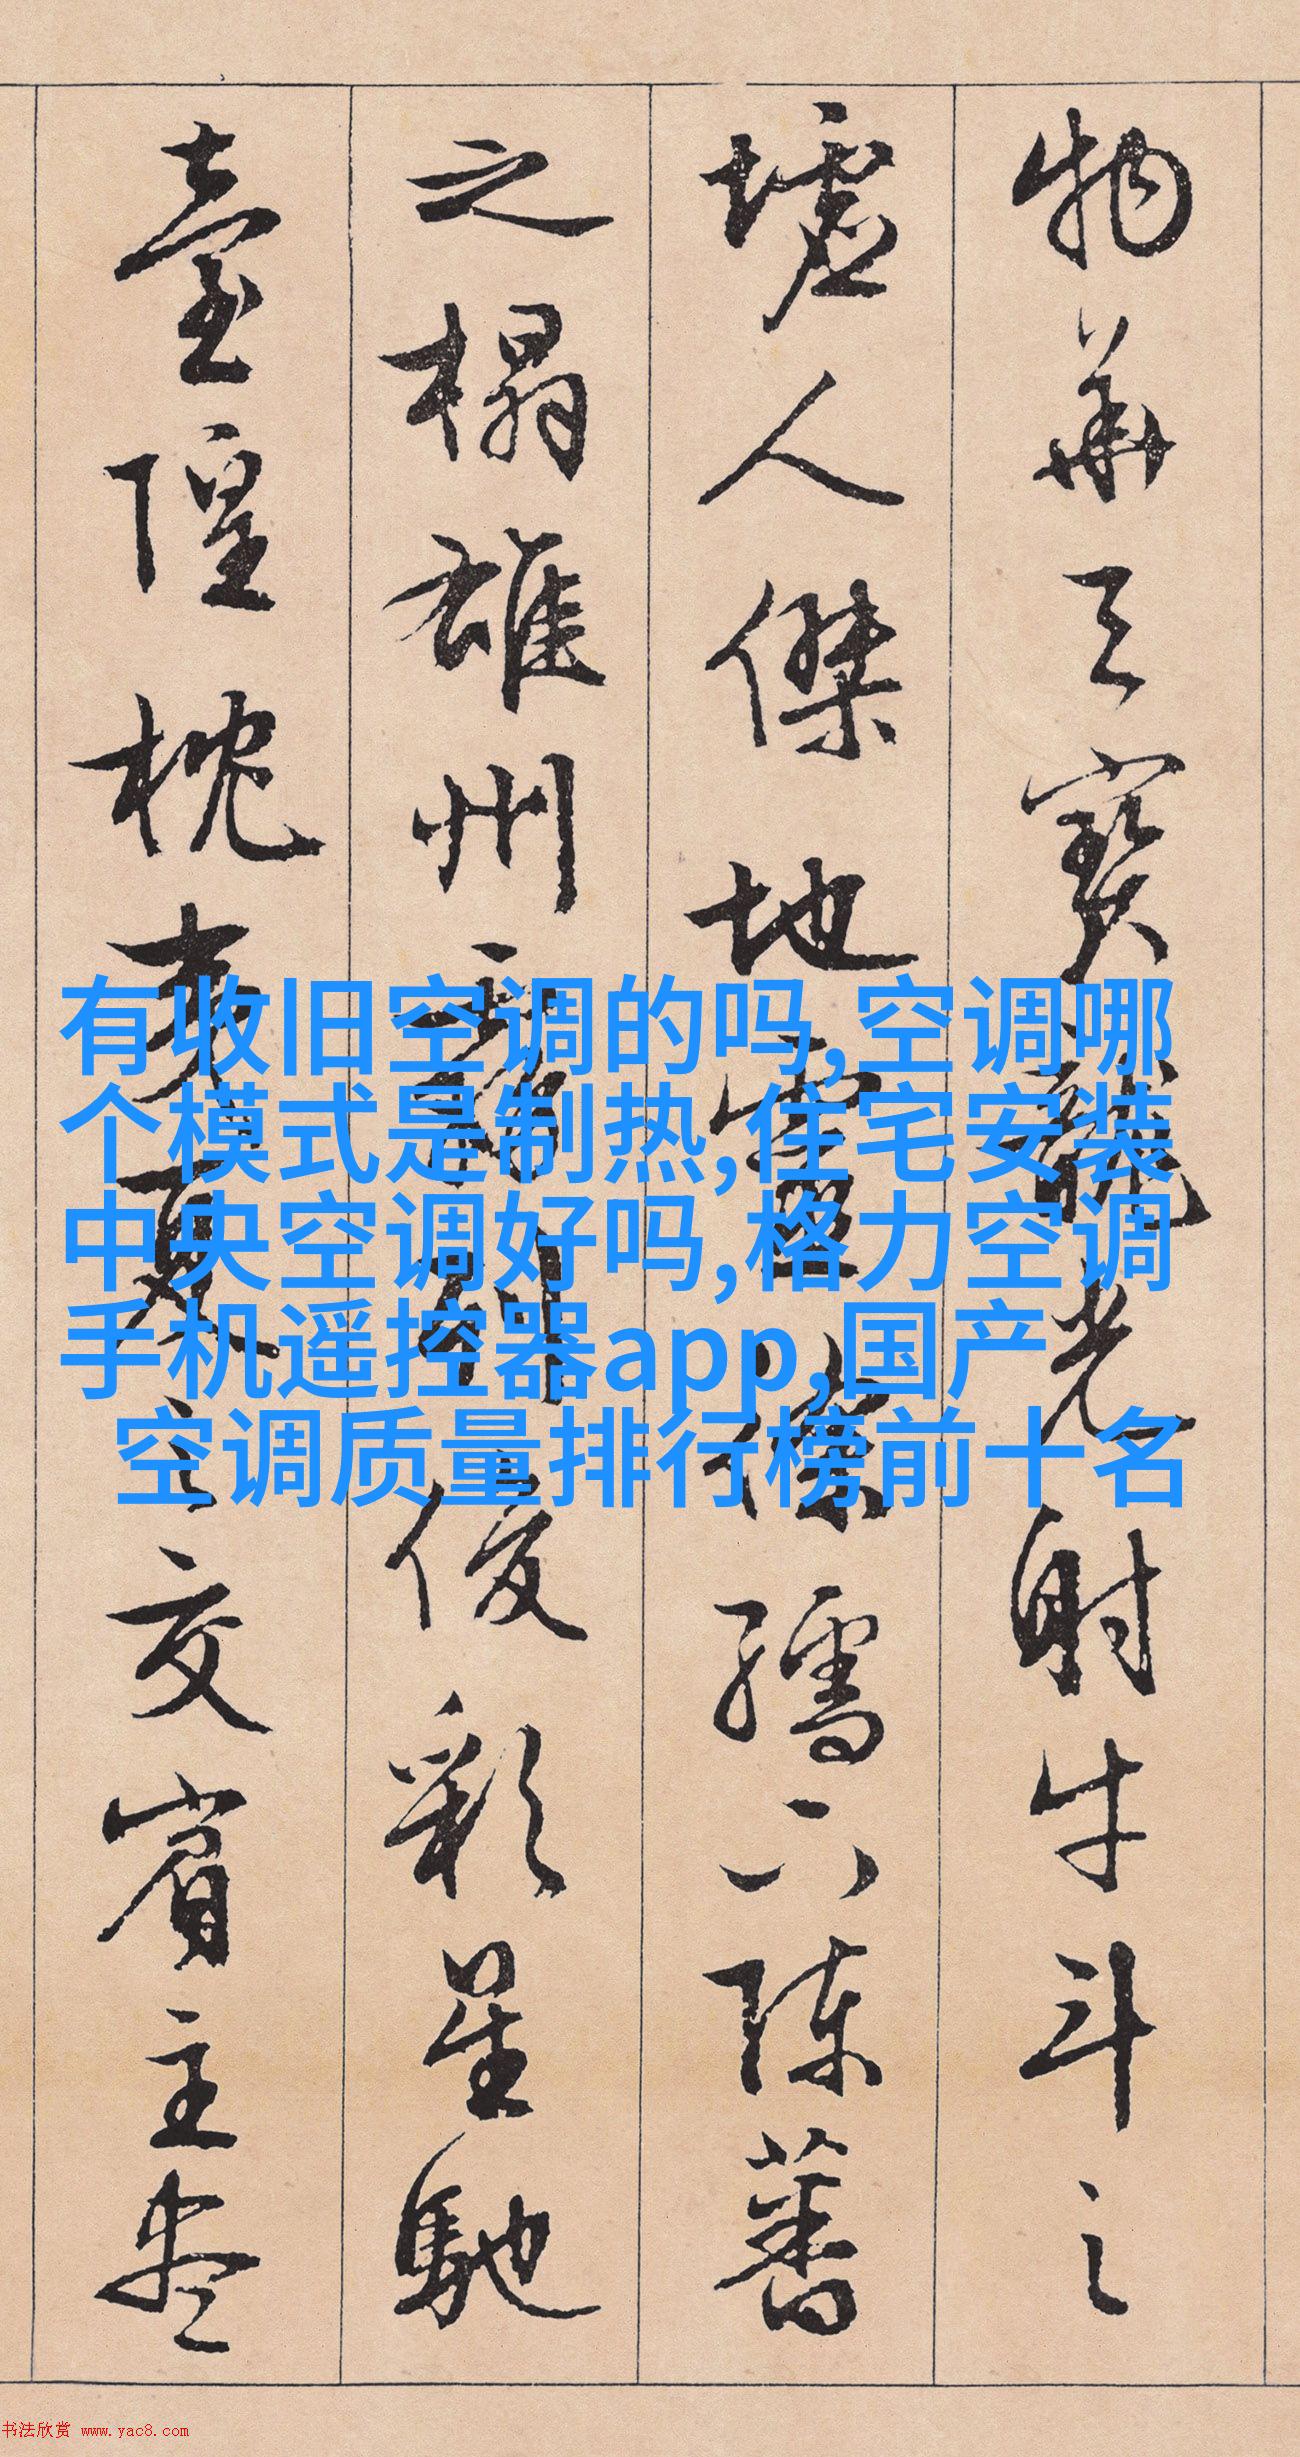 物華天寶龍光射牛斗之
墟人傑地靈徐孺下陳蕃
之榻雄州霧列俊彩星馳
臺隍枕夷夏之交賓主盡
有收旧空调的吗,空调哪
个模式是制热,住宅安装
中央空调好吗,格力空调
手机遥控器app,国产
空调质量排行榜前十名
书法欣赏 www.yac8.com